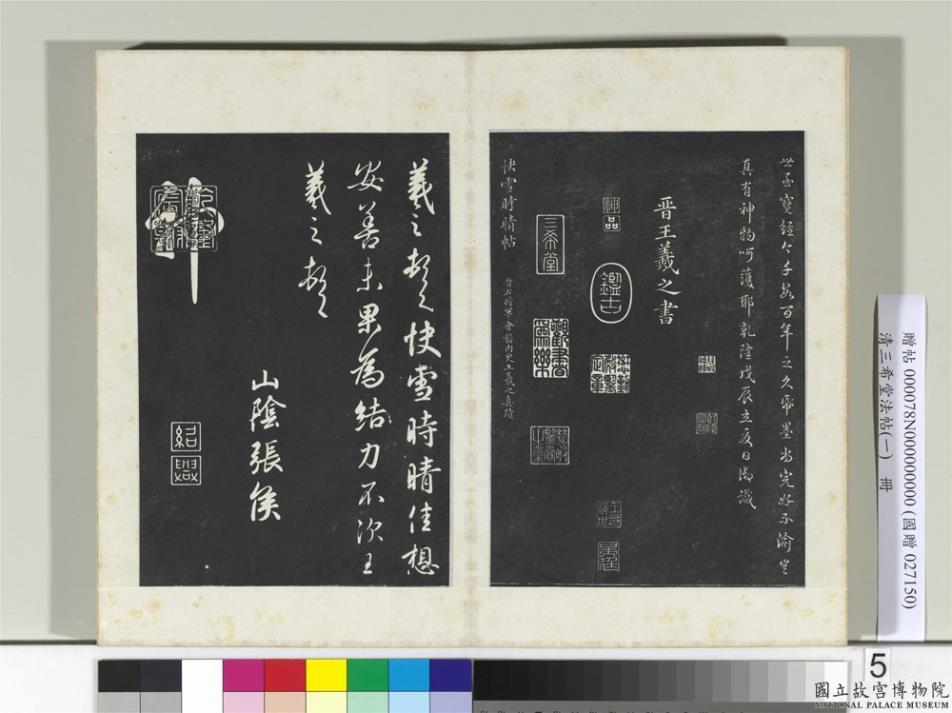 世至寶經今千數百年之久帋墨尚完好不渝豈
真有神物呵護耶乾隆戊辰立夏日御識
晉王羲之書
神品
鑑古
三希堂
觀書為樂
快雪時晴帖
晉右將軍會稽內史王羲之真蹟
羲之頓首快雪時晴佳想
安善未果為結力不次王
羲之頓首
山陰張侯
神
乾隆宸翰
紹興
贈帖 000078N000000000 (國贈 027150)
清三希堂法帖(一) 冊
5
國立故宮博物院
NATIONAL PALACE MUSEUM